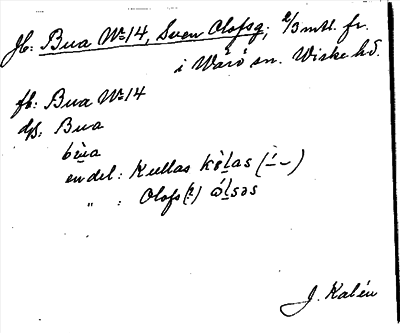 Jb: Bua No 14, Sven Olofsg; 2/3 mtl. fr.
i Värö sn. Wiske hd.
fb: Bua No 14
ds: Bua
bè̱ua
en del: Kullas kø̀ḻas (–́ ⌣)
" : Olofs(?) ǿḻsəs
J. Kalén